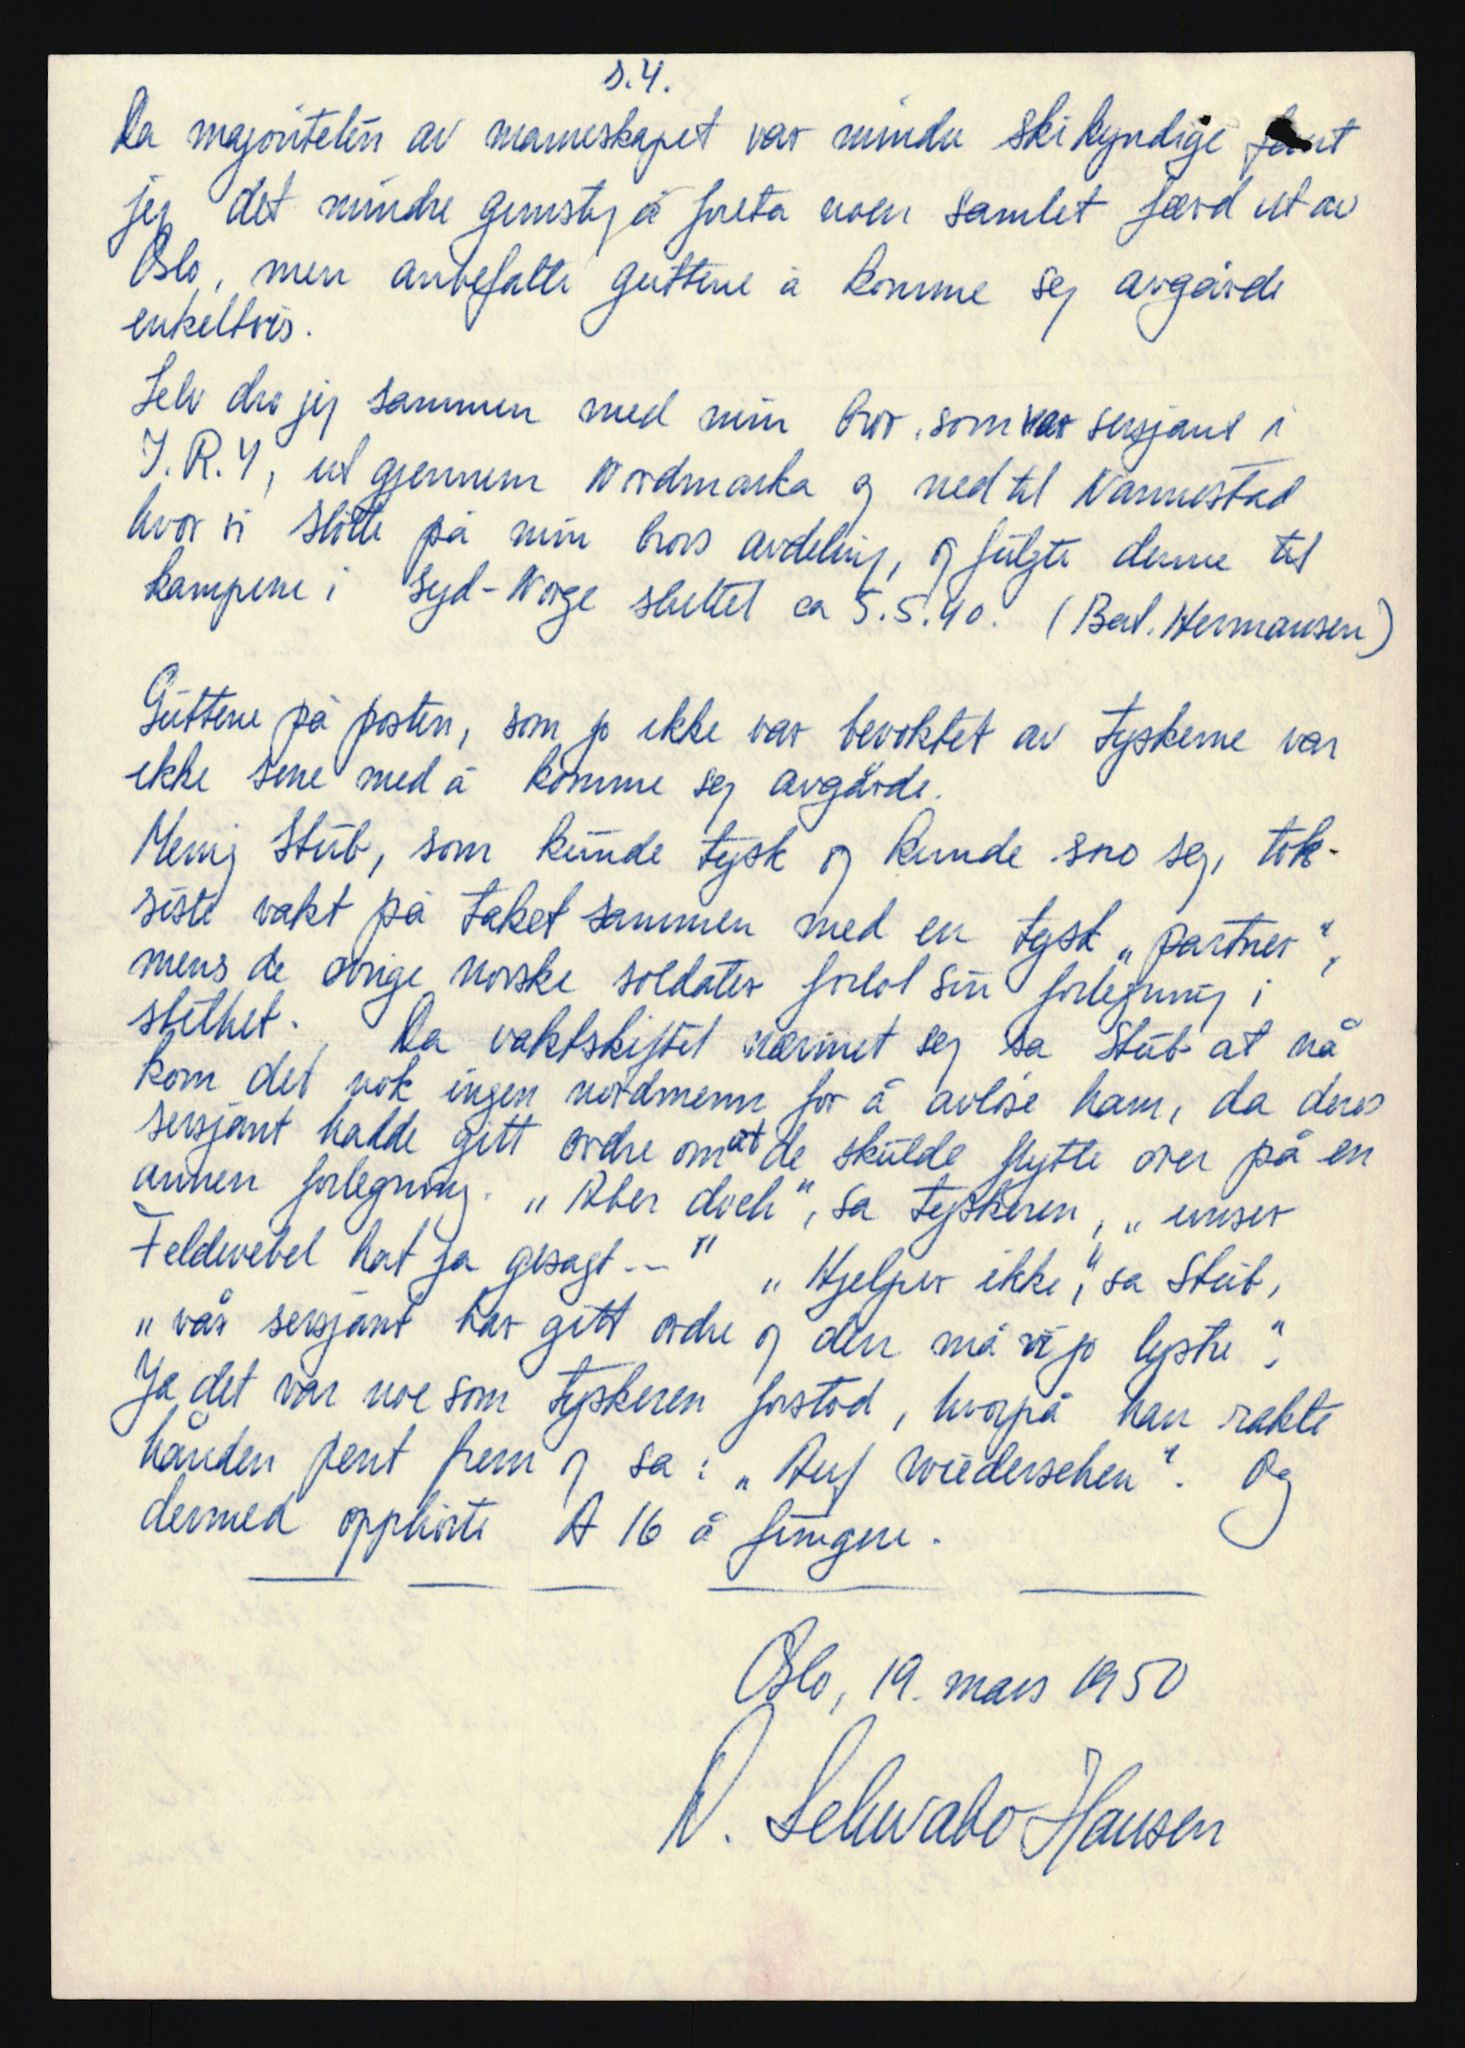 s. 4.
Da majoriteten av mannskapet var mindre skikyndige fant
jeg det mindre gunstig å foreta noen samlet færd ut av
Oslo, men anbefalte guttene å komme seg avgårde
enkeltvis.
Selv dro jeg sammen med min bror, som var sersjant i
I.R.4, ut gjennem Nordmarka og ned til Nannestad
hvor vi støtte på min brors avdeling, og fulgte denne til
kampene i Syd-Norge sluttet ca 5.5.40. (Bat. Hermansen)
Guttene på posten, som jo ikke var bevoktet av tyskerne var
ikke sene med å komme seg avgårde.
Menig Stub, som kunde tysk og kunde sno seg, tok
siste vakt på taket sammen med en tysk „partner“,
mens de øvrige norske soldater forlot sin forlegning i
stillhet. Da vaktskiftet nærmet seg sa Stub at nå
kom det nok ingen nordmenn for å avløse ham, da deres
sersjant hadde gitt ordre om at de skulde flytte over på en
annen forlegning. „Aber doch“, sa tyskeren, „unser
Feldwebel hat ja gesagt --“ „Hjelper ikke“, sa Stub,
„vår sersjant har gitt ordre og den må vi jo lystre“.
Ja det var noe som tyskeren forstod, hvorpå han rakte
hånden pent frem og sa: „Auf wiedersehen“. Og
dermed opphørte A 16 å fungere.
Oslo, 19. mars 1950
Schwabo Hansen